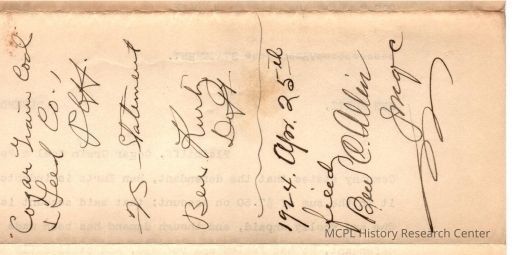 Cogar Grain Coal
& Feed Co.,
Plff.
vs Statement
Ben Kurtz
Deft.
1924 Apr. 25th
filed
Ben C. Allin
MCPL History Research Center